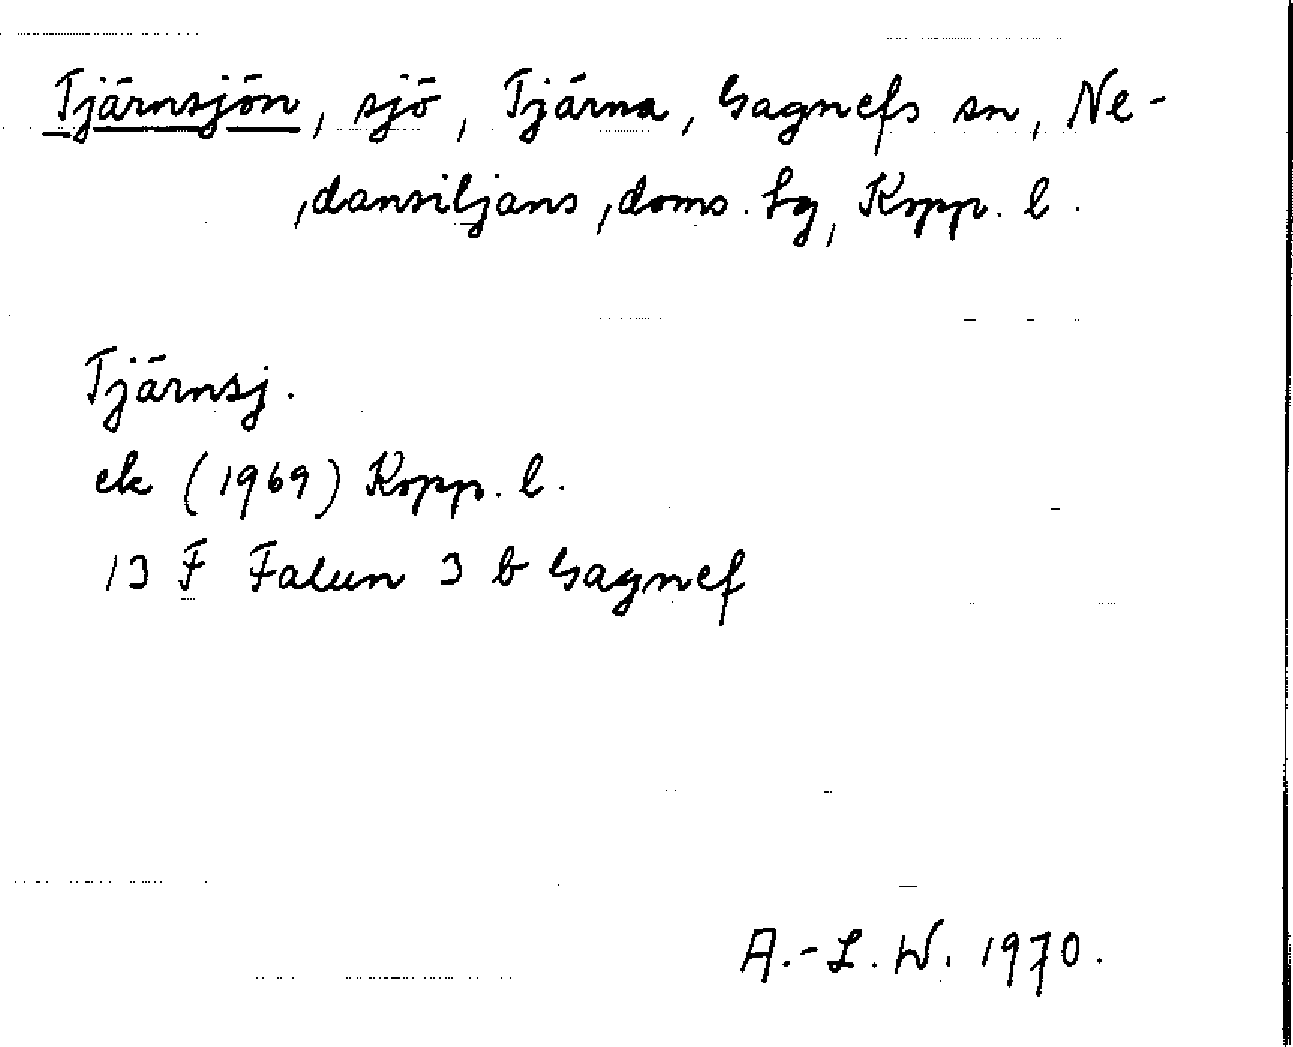 Tjärnsjön, sjö, Tjärna, Gagnefs sn, Ne-
dansiljans doms. hg, Kopp. l.
Tjärnsj.
ek (1969) Kopp. l.
13 F Falun 3 b Gagnef
A.-L. W. 1970.